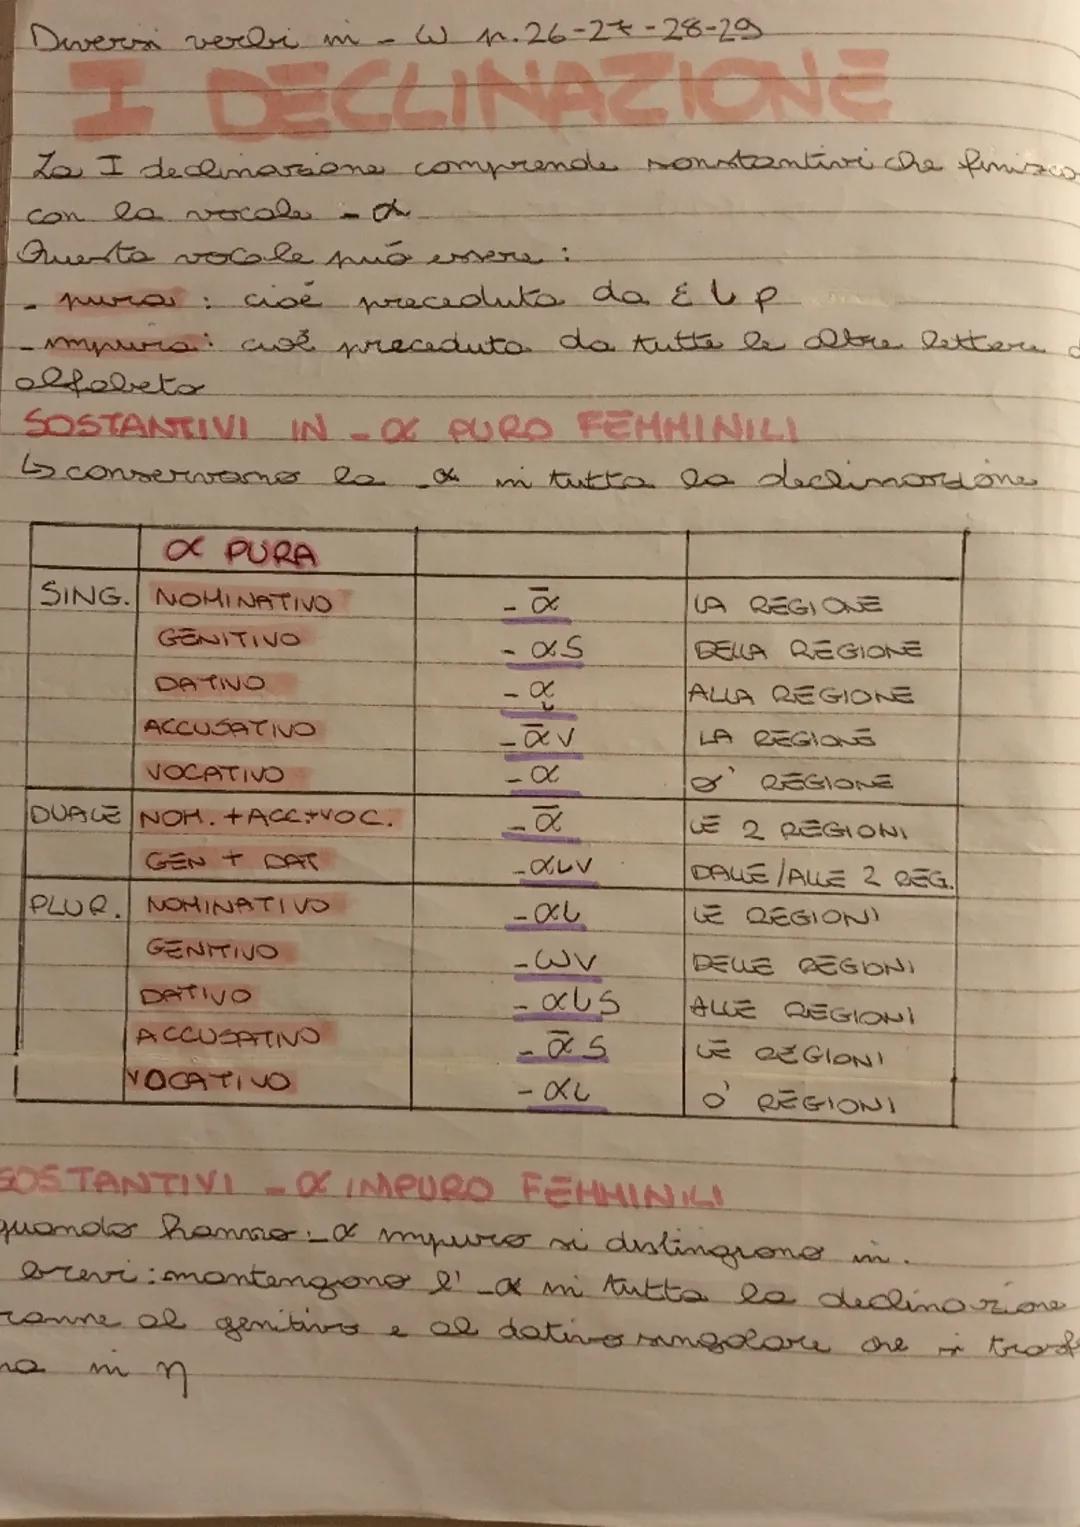 Diversi verbi in - ω p. 26-27-28-29
I DECLINAZIONE
La I declinazione comprende sonstantivi che finisco
con la vocale - α
Questa vocale può essere :
- pura : cioè preceduta da ε ι ρ
- impura : cioè preceduta da tutte le altre lettere d
alfabeto
SOSTANTIVI IN - α PURO FEMMINILI
↳ conservano la -α in tutta la declinazione
α PURA
SING. NOMINATIVO - ᾱ LA REGIONE
GENITIVO - ας DELLA REGIONE
DATIVO - ᾳ ALLA REGIONE
ACCUSATIVO - ᾱν LA REGIONE
VOCATIVO - α O' REGIONE
DUALE NOM. + ACC + VOC. - ᾱ LE 2 REGIONI
GEN + DAT - αιν DALLE / ALLE 2 REG.
PLUR. NOMINATIVO - αι LE REGIONI
GENITIVO - ων DELLE REGIONI
DATIVO - αις ALLE REGIONI
ACCUSATIVO - ᾱς LE REGIONI
VOCATIVO - αι O' REGIONI
SOSTANTIVI - α IMPURO FEMMINILI
quando hanno - α impuro si distinguono in .
brevi : mantengono l' -α in tutta la declinazione
ranne al genitivo e al dativo singolare che si trasf
ma in η